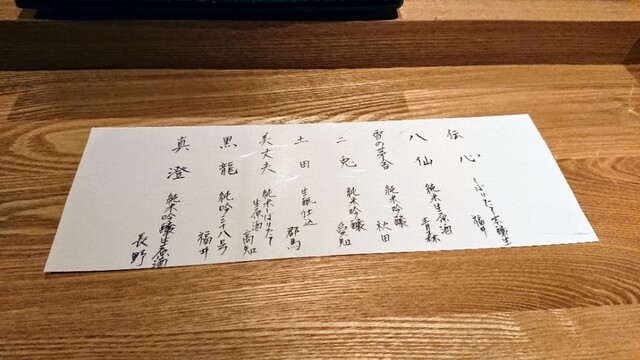 伝心 しぼりたて本醸生 福井
八仙 純米生原酒 青森
雪の茅舎 純米吟醸 秋田
二兎 純米吟醸 愛知
土田 生酛仕込 群馬
美丈夫 純米しぼりたて生原酒 高知
黒龍 純吟三十八号 福井
真澄 純米吟醸生原酒 長野